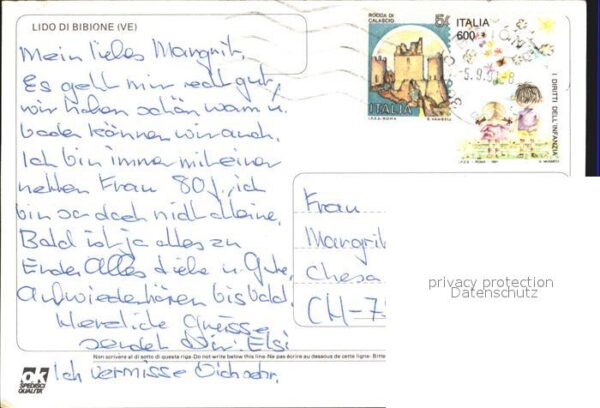 LIDO DI BIBIONE (VE)
Mein liebes Margrit,
Es geht mir recht gut,
wir haben schön warm u
baden können wir auch.
Ich bin immer mit einer
netten Frau 80 J., ich
bin so doch nicht alleine.
Bald ist ja alles zu
Ende Alles Liebe u. Gute,
Aufwiederhören bis bald.
Herzliche Grüsse
sendet Dir: Elsi
Ich vermisse Dich sehr.
ROCCA DI
CALASCIO
5
ITALIA
I.P.Z.S. ROMA
ITALIA
600
I DIRITTI DELL'INFANZIA
I.P.Z.S. ROMA 1991
5.9.91-8
Frau
Margrit
Chesa
CH-7
privacy protection
Datenschutz
Non scrivere al di sotto di questa riga-Do not write below this line-Ne pas écrire au dessous de cette ligne- Bitte
OK
SPEDISCI
QUALITÀ